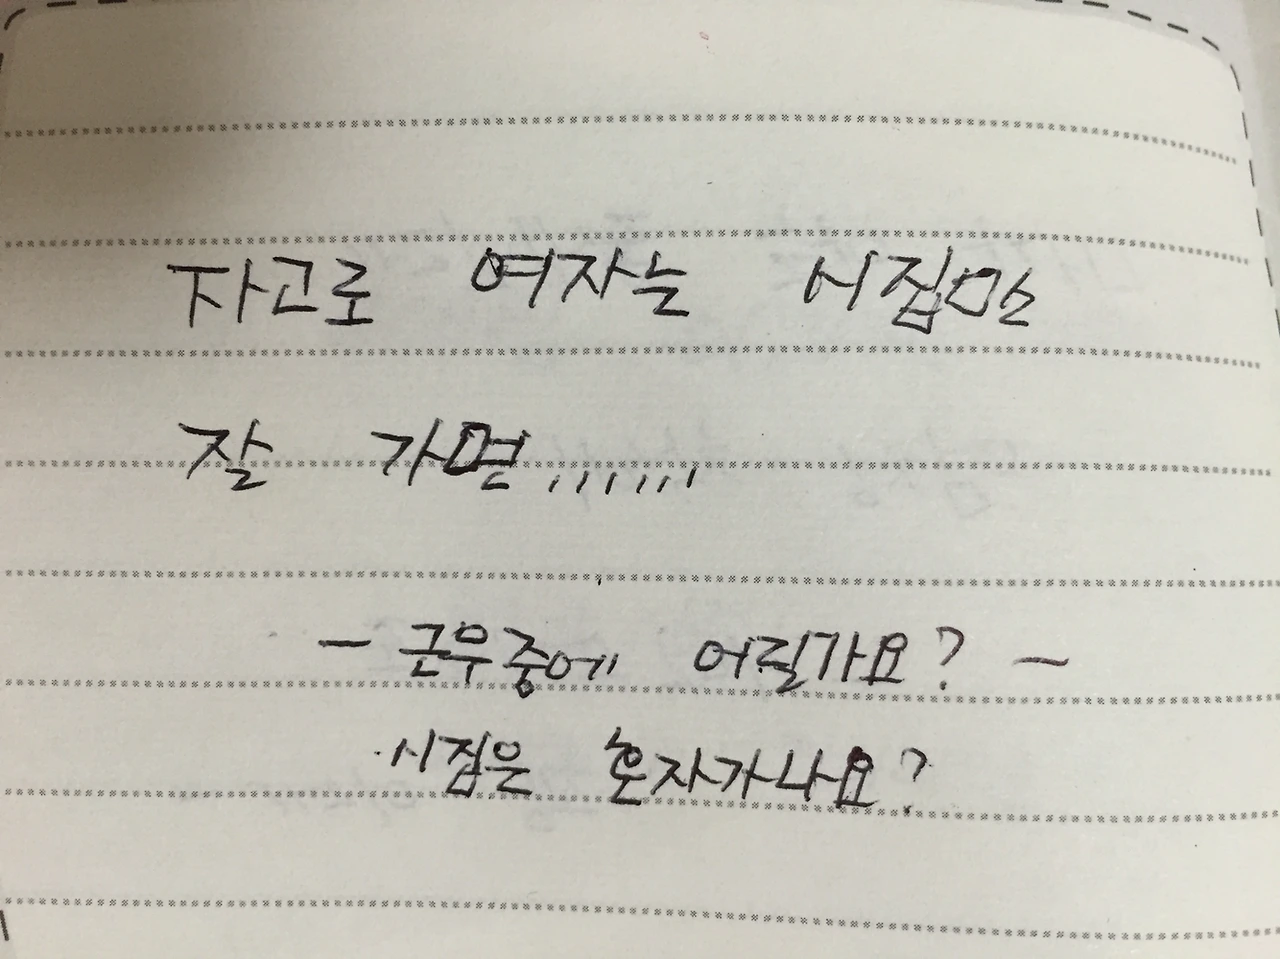 자고로 여자는 시집만
잘 가면.......
- 근무중에 어릴가요? -
시집은 혼자가나요?